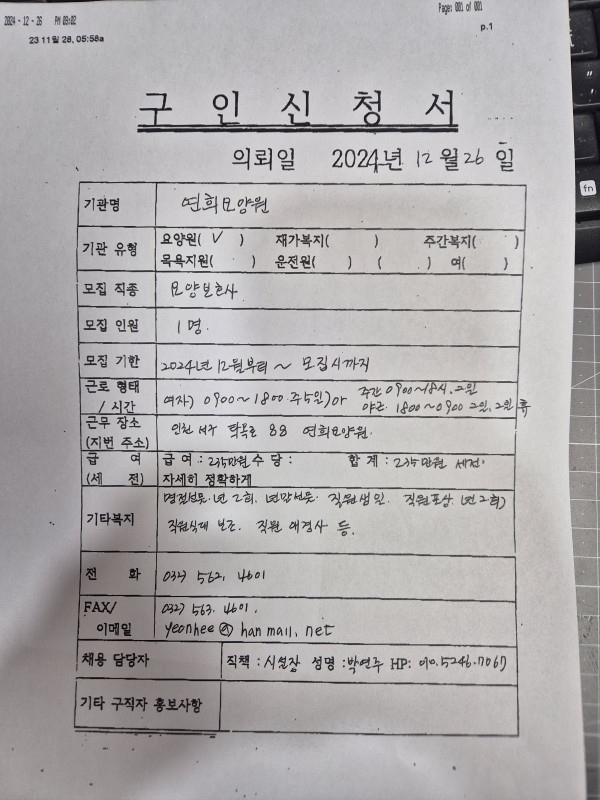 2024-12-26 PM 09:02
Page: 001 of 001
23 11월 28, 05:58a
p.1
구 인 신 청 서
의뢰일 2024년 12월 26일
기관명 연희요양원
기관 유형 요양원( V ) 재가복지( ) 주간복지( )
목욕지원( ) 운전원( ) ( ) 여( )
모집 직종 요양보호사
모집 인원 1명.
모집 기한 2024년 12월부터 ~ 모집시까지
근로 형태 / 시간 여자) 0900~1800 주5일)
주간 0900~18시. 2일
야근 1800~0900 2일. 2일 휴
근무 장소 (지번 주소) 인천 서구 탁옥로 88 연희요양원.
급 여 (세 전) 급여 : 235만원 수당 : 합계 : 235만원 세전.
자세히 정확하게
기타복지 명절선물.년 2회. 년말선물. 직원생일. 직원포상. 년 2회)
직원식대 보조. 직원 애경사 등.
전 화 032) 562. 4601
FAX/ 이메일 032) 563. 4601.
yeonhee @ hanmail. net
채용 담당자 직책 : 시설장 성명 : 박연주 HP: 010.5246.7067
기타 구직자 홍보사항
fn